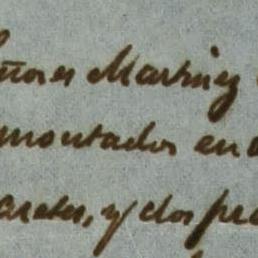 ñores Martinez
montados en
aretes, y dos pe